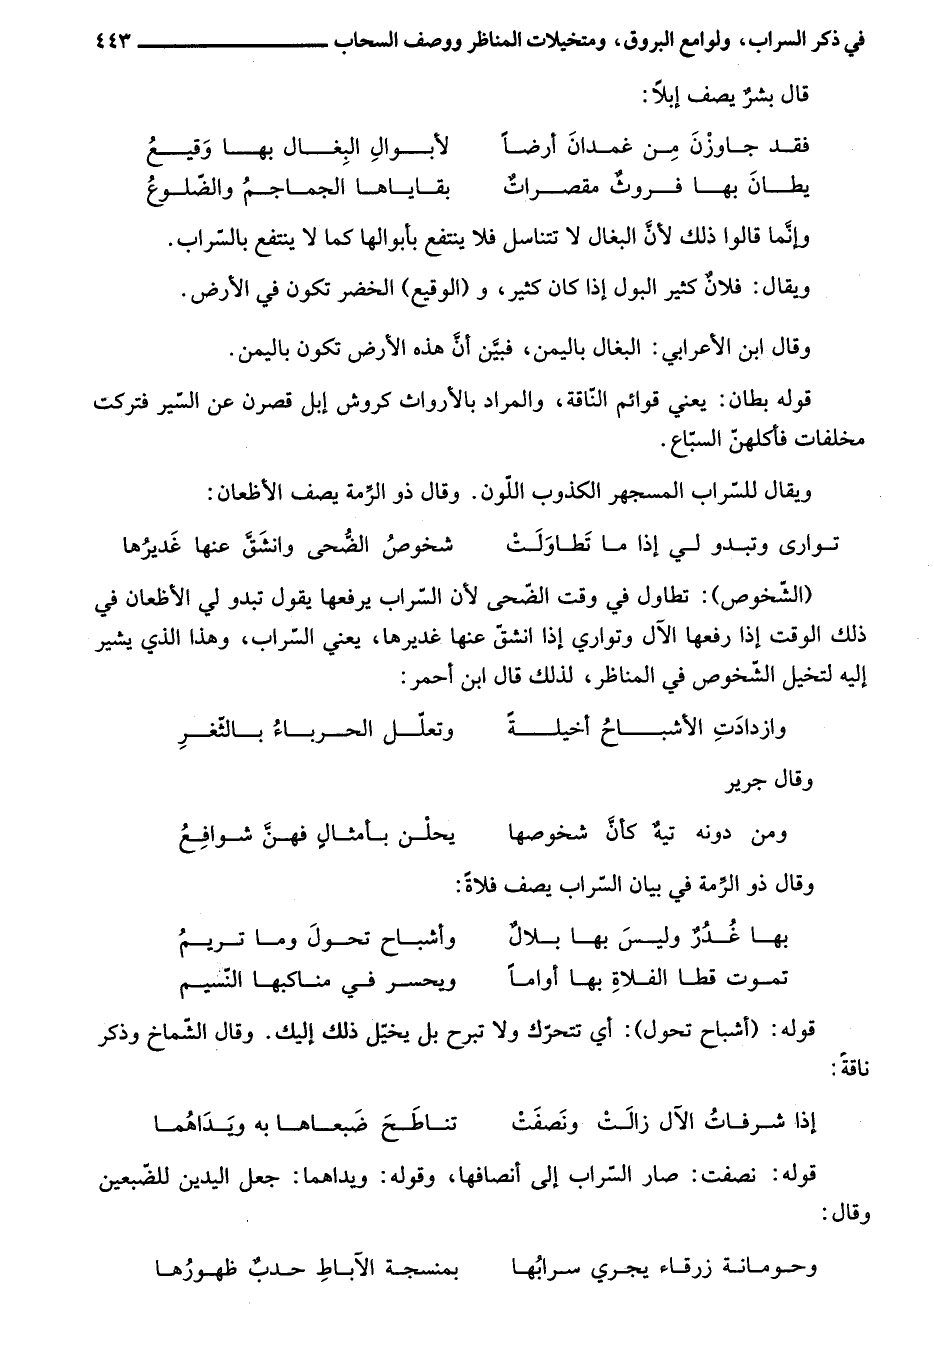 في ذكر السراب، ولوامع البروق، ومتخيلات المناظر ووصف السحاب ــــــــــــ ٤٤٣
قال بشرٌ يصف إبلاً:
فقـد جـاوزْنَ مِـن غمـدانَ أرضـاً لأبـوالِ البِغـال بهـا وَقيـعُ
يطـانَ بهـا فـروثٌ مقصـراتٌ بقـايـاهـا الجمـاجـمُ والضّلـوعُ
وإنَّما قالوا ذلك لأنَّ البغال لا تتناسل فلا ينتفع بأبوالها كما لا ينتفع بالسّراب.
ويقال: فلانٌ كثير البول إذا كان كثير، و (الوقيع) الخضر تكون في الأرض.
وقال ابن الأعرابي: البغال باليمن، فبيَّن أنَّ هذه الأرض تكون باليمن.
قوله بطان: يعني قوائم النّاقة، والمراد بالأرواث كروش إبل قصرن عن السّير فتركت
مخلفات فأكلهنّ السبّاع.
ويقال للسّراب المسجهر الكذوب اللّون. وقال ذو الرّمة يصف الأظعان:
تـوارى وتبـدو لـي إذا مـا تَطـاوَلَـتْ شخوصُ الضُّحى وانشَقَّ عنها غَديرُها
(الشّخوص): تطاول في وقت الضّحى لأن السّراب يرفعها يقول تبدو لي الأظعان في
ذلك الوقت إذا رفعها الآل وتواري إذا انشقّ عنها غديرها، يعني السّراب، وهذا الذي يشير
إليه لتخيل الشّخوص في المناظر، لذلك قال ابن أحمر:
وازدادَتِ الأشبـاحُ أخيلـةً وتعلّـل الحـربـاءُ بـالنّغـرِ
وقال جرير
ومن دونه تيهٌ كأنَّ شخوصها يحلْـن بـأمثـالٍ فهـنَّ شـوافـعُ
وقال ذو الرّمة في بيان السّراب يصف فلاةً:
بهـا غُـدُرٌ وليـسَ بهـا بـلالٌ وأشبـاح تحـولَ ومـا تـريـمُ
تمـوت قطـا الفـلاةِ بهـا أوامـاً ويحسـر فـي منـاكبهـا النّسيـم
قوله: (أشباح تحول): أي تتحرّك ولا تبرح بل يخيّل ذلك إليك. وقال الشّماخ وذكر
ناقةً:
إذا شـرفـاتُ الآل زالَـتْ ونَصفَتْ تنـاطَـحَ ضَبعـاهـا به ويَـدَاهُمـا
قوله: نصفت: صار السّراب إلى أنصافها، وقوله: ويداهما: جعل اليدين للضّبعين
وقال:
وحـومـانـة زرقـاء يجري سـرابُهـا بمنسجـة الآبـاطِ حـدبٌ ظهـورُهـا